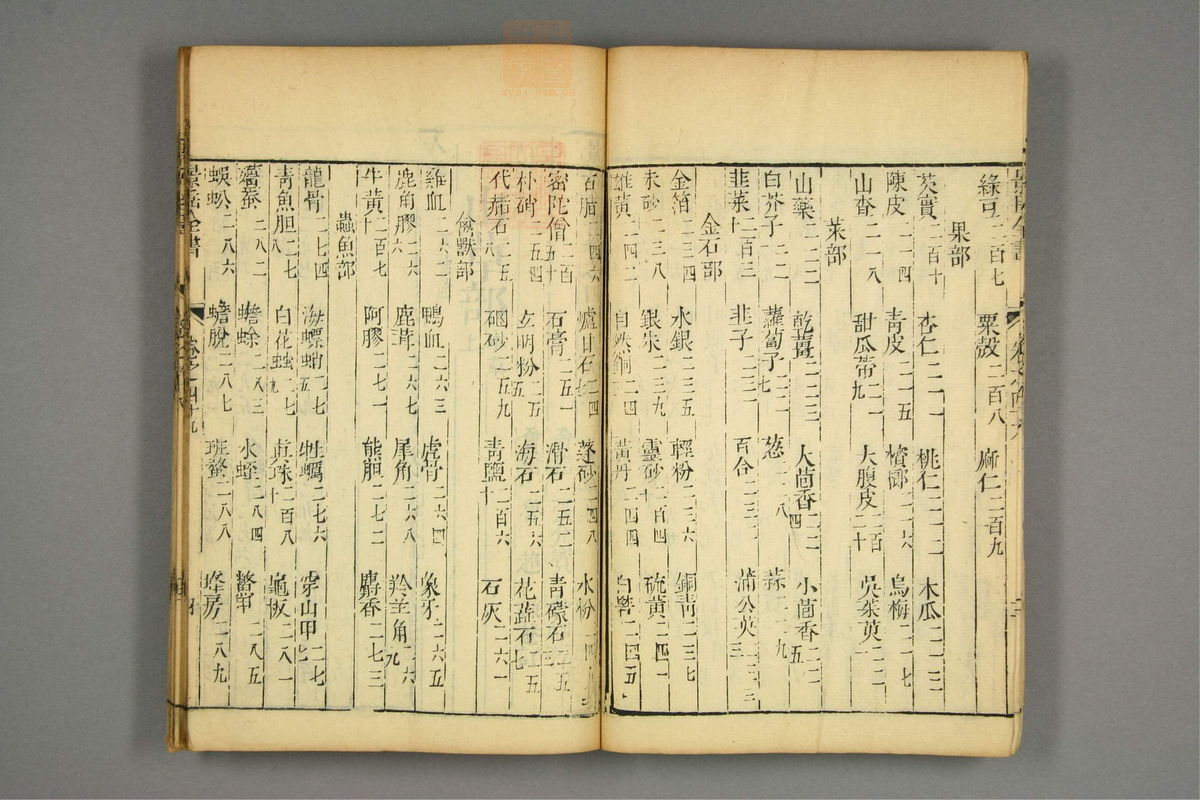 綠豆二百七 粟殼二百八 麻仁二百九
果部
芡實二百十 杏仁二一一 桃仁二一二 木瓜二一三
陳皮二一四 青皮二一五 檳榔二一六 烏梅二一七
山查二一八 甜瓜蒂二一九 大腹皮二百二十 吳茱萸二二一
菜部
山藥二二二 乾薑二二三 大茴香二二四 小茴香二二五
白芥子二二六 蘿蔔子二二七 葱二二八 蒜二二九
韭菜二百三十 韭子二三一 百合二三二 蒲公英二三三
金石部
金箔二三四 水銀二三五 輕粉二三六 銅青二三七
朱砂二三八 銀朱二三九 靈砂二百四十 硫黃二四一
雄黃二四二 自然銅二四三 黃丹二四四 白礬二四五
石脂二四六 爐甘石二四七 蓬砂二四八 水粉二四九
密陀僧二百五十 石膏二五一 滑石二五二 青礞石二五三
朴硝二五四 玄明粉二五五 海石二五六 花蕊石二五七
代赭石二五八 硇砂二五九 青鹽二百六十 石灰二六一
禽獸部
雞血二六二 鴨血二六三 虎骨二六四 象牙二六五
鹿角膠二六六 鹿茸二六七 犀角二六八 羚羊角二六九
牛黃二百七十 阿膠二七一 熊胆二七二 麝香二七三
蟲魚部
龍骨二七四 海螵蛸二七五 牡蠣二七六 穿山甲二七七
青魚胆二七八 白花蛇二七九 真珠二百八十 龜板二八一
殭蠶二八二 蟾蜍二八三 水蛭二八四 鱉甲二八五
蜈蚣二八六 蟾脫二八七 班蝥二八八 蜂房二八九
景岳全書 卷之四十九 四